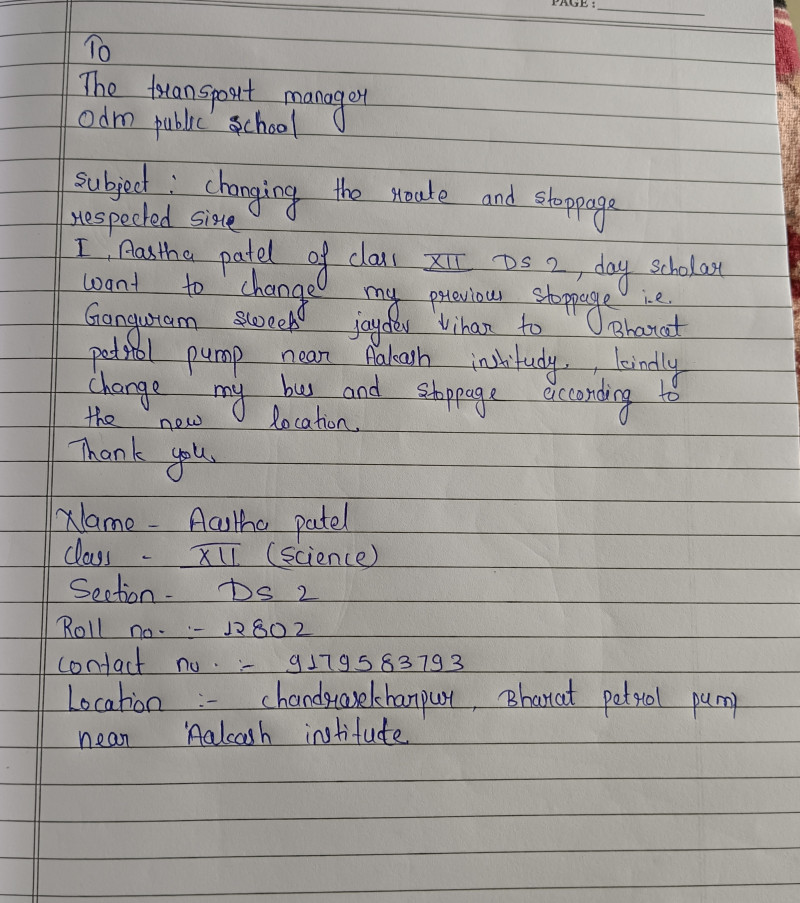 PAGE:
To
The transport manager
Odm public school
Subject : changing the route and stoppage
respected sire
I, Aastha patel of class XII DS 2, day scholar
want to change my previous stoppage i.e.
Ganguram sweets jaydev vihar to Bharat
petrol pump near Aakash institudy, kindly
change my bus and stoppage eiccording to
the new location.
Thank you.
Name - Aastha patel
class - XII (Science)
Section - DS 2
Roll no. :- 12802
contact no. :- 9179583793
Location :- chandrasekharpur, Bharat petrol pump
near Aakash institute